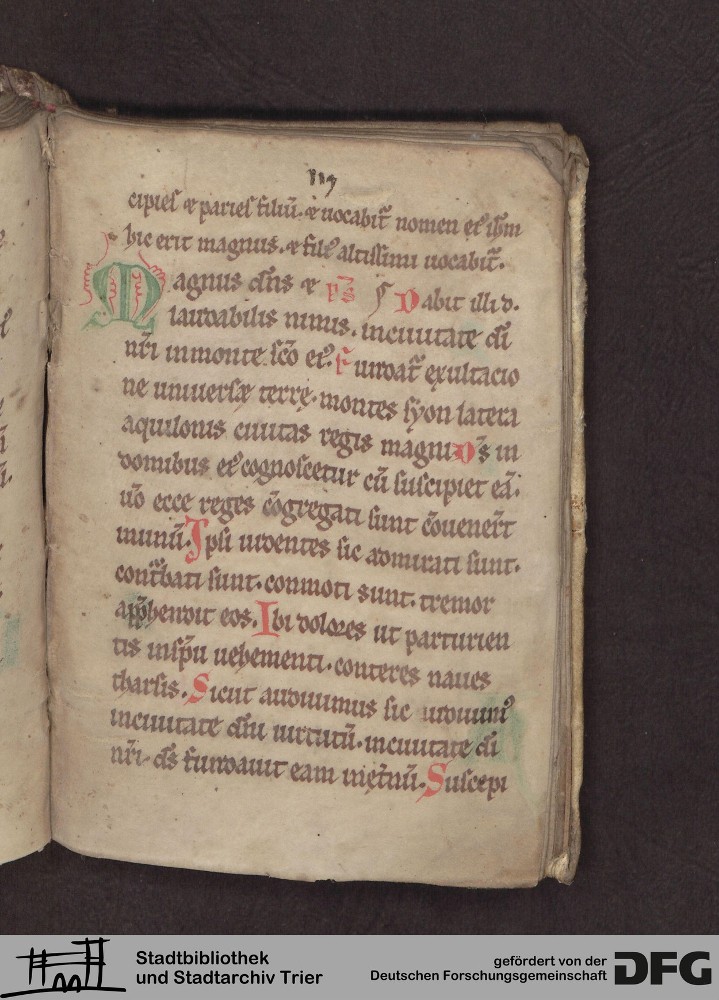 117
cipies & paries filiū. & uocabit̄ nomen ei᷒ ihm
hic erit magnus. & fili᷒ altissimi uocabit̄.
Magnus dn̄s & ps̄ Dabit illi d.
laudabilis nimis. inciuitate di
nr̄i inmonte sc̄o ei᷒. Fundat̄ exultacio
ne uniuersæ terrę. montes syon latera
aquilonis ciuitas regis magni Ds̄ in
domibus ei᷒ cognoscetur cū suscipiet eā.
Qm̄ ecce reges cōgregati sunt cōuener̄t
inunū. Ipsi uidentes sic admirati sunt.
cont̄bati sunt. conmoti sunt. tremor
app̄hendit eos. Ibi dolores ut parturien
tis insp̄u uehementi. conteres naues
tharsis. Sicut audiuimus sic uidimus
inciuitate dn̄i uirtutū. inciuitate di
nr̄i. ds̄ fundauit eam inet̄nū. Suscepi
Stadtbibliothek
und Stadtarchiv Trier
gefördert von der
Deutschen Forschungsgemeinschaft DFG